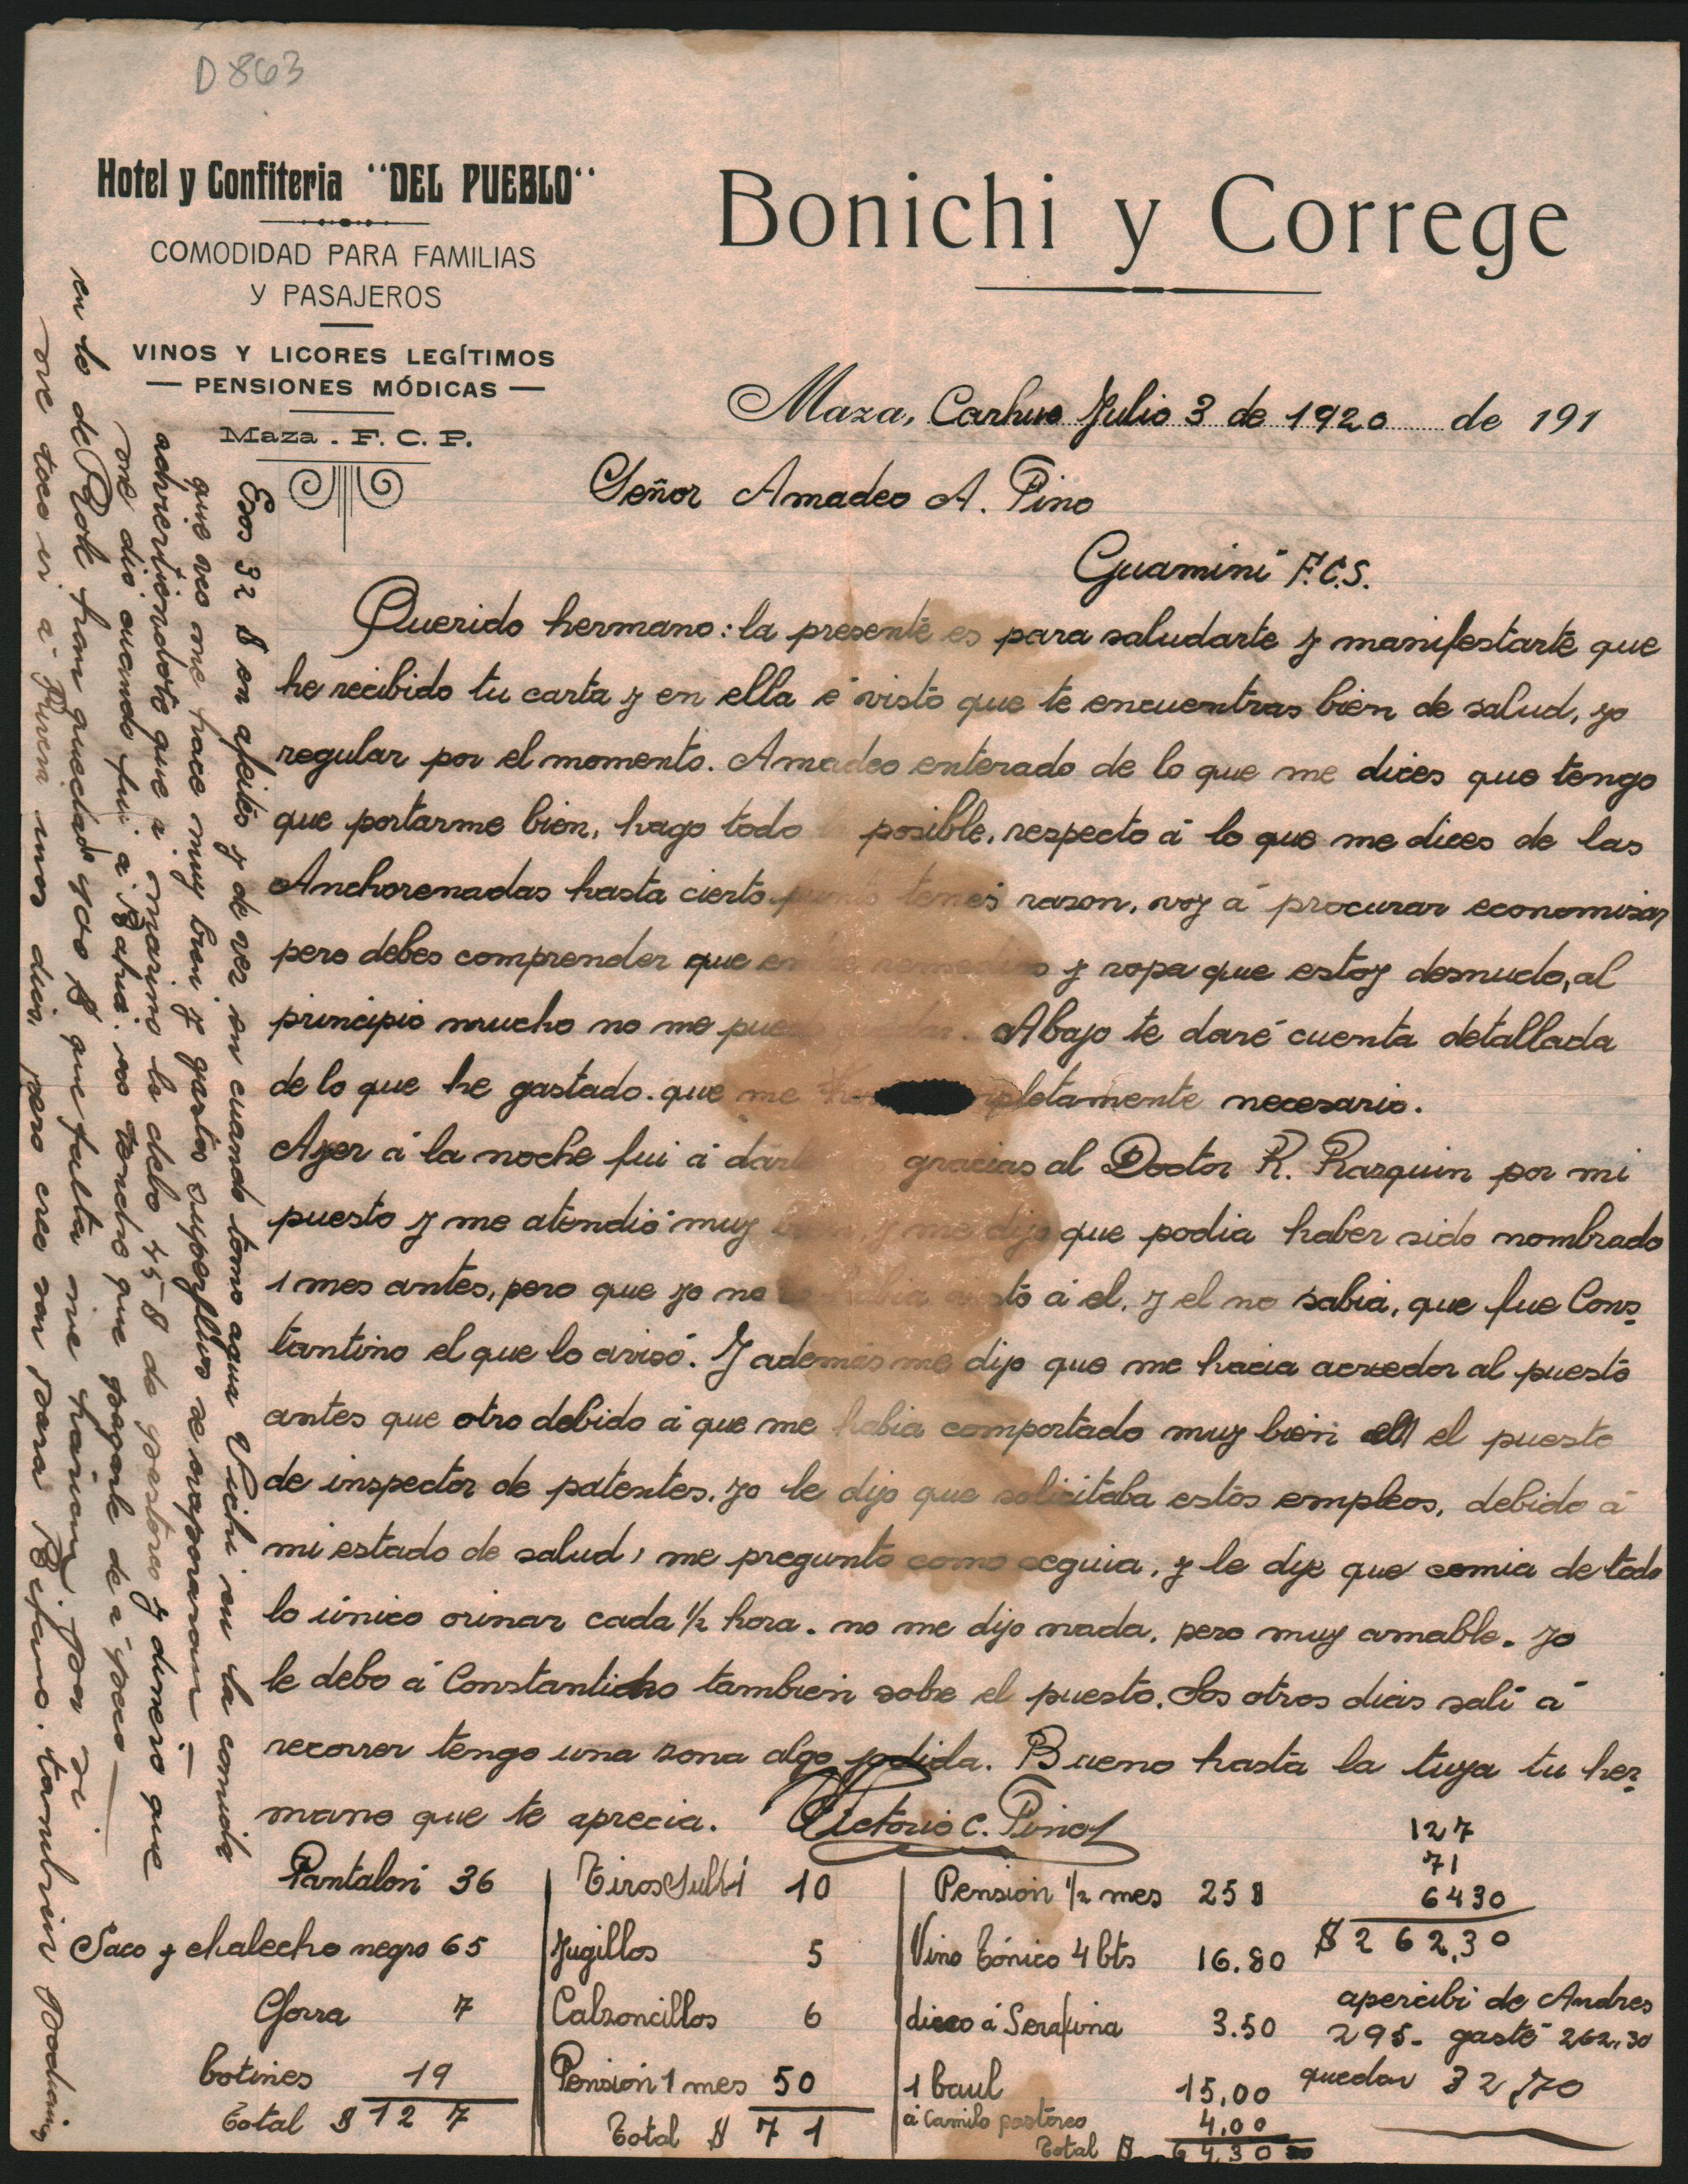 D863
Hotel y Confiteria "DEL PUEBLO"
COMODIDAD PARA FAMILIAS
Y PASAJEROS
VINOS Y LICORES LEGÍTIMOS
— PENSIONES MÓDICAS —
Maza . F. C. P.
Bonichi y Correge
Maza, Carhue Julio 3 de 1920 de 191
Señor Amadeo A. Pino
Guamini F.C.S.
Querido hermano: la presente es para saludarte y manifestarte que
he recibido tu carta y en ella é visto que te encuentras bien de salud, yo
regular por el momento. Amadeo enterado de lo que me dices que tengo
que portarme bien, hago todo posible, respecto á lo que me dices de las
Anchorenadas hasta cierto punto tenes razon, voy á procurar economisar
pero debes comprender que y ropa que estoy desnudo, al
principio mucho no me Abajo te daré cuenta detallada
de lo que he gastado. que me pletamente necesario.
Ayer á la noche fui á darle gracias al Doctor R. Rarquin por mi
puesto y me atendió muy y me dijo que podia haber sido nombrado
1 mes antes, pero que yo no á el, y el no sabia, que fue Cons
tantino el que lo avisó. Y además me dijo que me hacia acreedor al puesto
antes que otro debido á que me habia comportado muy bien en el puesto
de inspector de patentes. yo le dije que solicitaba estos empleos, debido á
mi estado de salud, me pregunto como seguia, y le dije que comia de todo
lo único orinar cada ½ hora. no me dijo nada, pero muy amable. Yo
le debo á Constantino tambien sobre el puesto. Los otros dias sali á
recorrer tengo una zona algo jodida. Bueno hasta la tuya tu her
mano que te aprecia. Victorio C. Pino
Pantalon 36
Saco y chalecho negro 65
Gorra 7
botines 19
Total $ 127
Tiros 10
Jugillos 5
Calzoncillos 6
Pension 1 mes 50
Total $ 71
Pension ½ mes 25 $
Vino Tónico 4 bts 16.80
dico á Serafina 3.50
1 baul 15,00
á Camilo pastoreo 4.00
Total $ 64,30
127
71
6430
$ 262,30
apercibi de Andres
295- gasté 262,30
quedan 32,70
Esos 32 $ en afeites y de vez en cuando tomo agua Vichi en la comida
que veo me hace muy bien y gastos superfluos se evaporaran.—
advertiendote que a marino le debo 45 $ de pastoreo y dinero que
me dio cuando fui a Bahia. no tendre que pagarle de a poco—
en lo de Rook han quedado que falta me harian, por si
me toco ir a Rivera unos dias, pero creo son para Bifano. tambien podrias